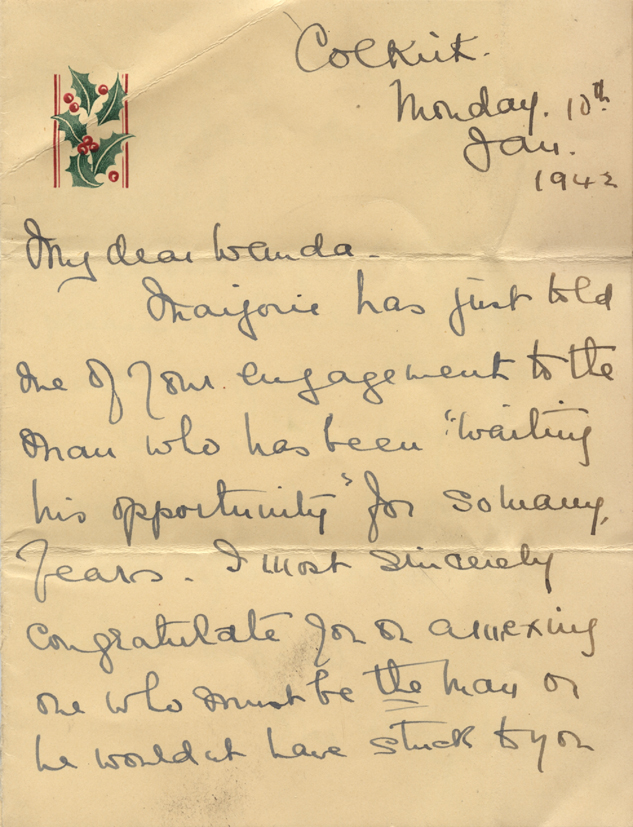 Colkirk.
Monday. 10th
Jan.
1942
My dear Wanda.
Marjorie has just told
me of your engagement to the
man who has been "waiting
his opportunity" for so many,
years. I most sincerely
congratulate you on annexing
one who must be the man or
he wouldn't have stuck to you